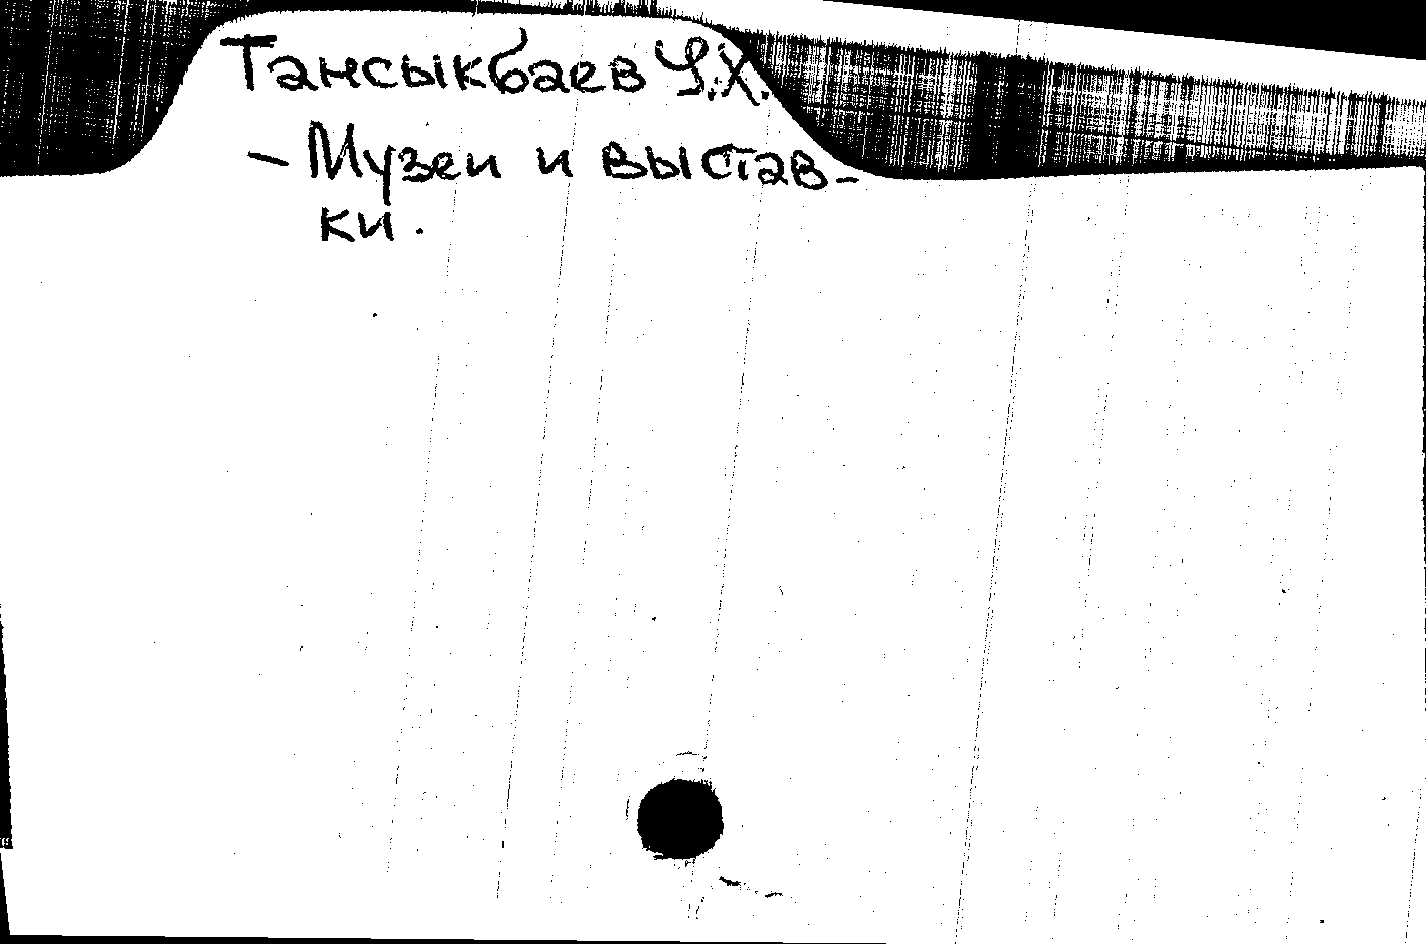 Тансыкбаев У.Х.
– Музеи и выстав-
ки.